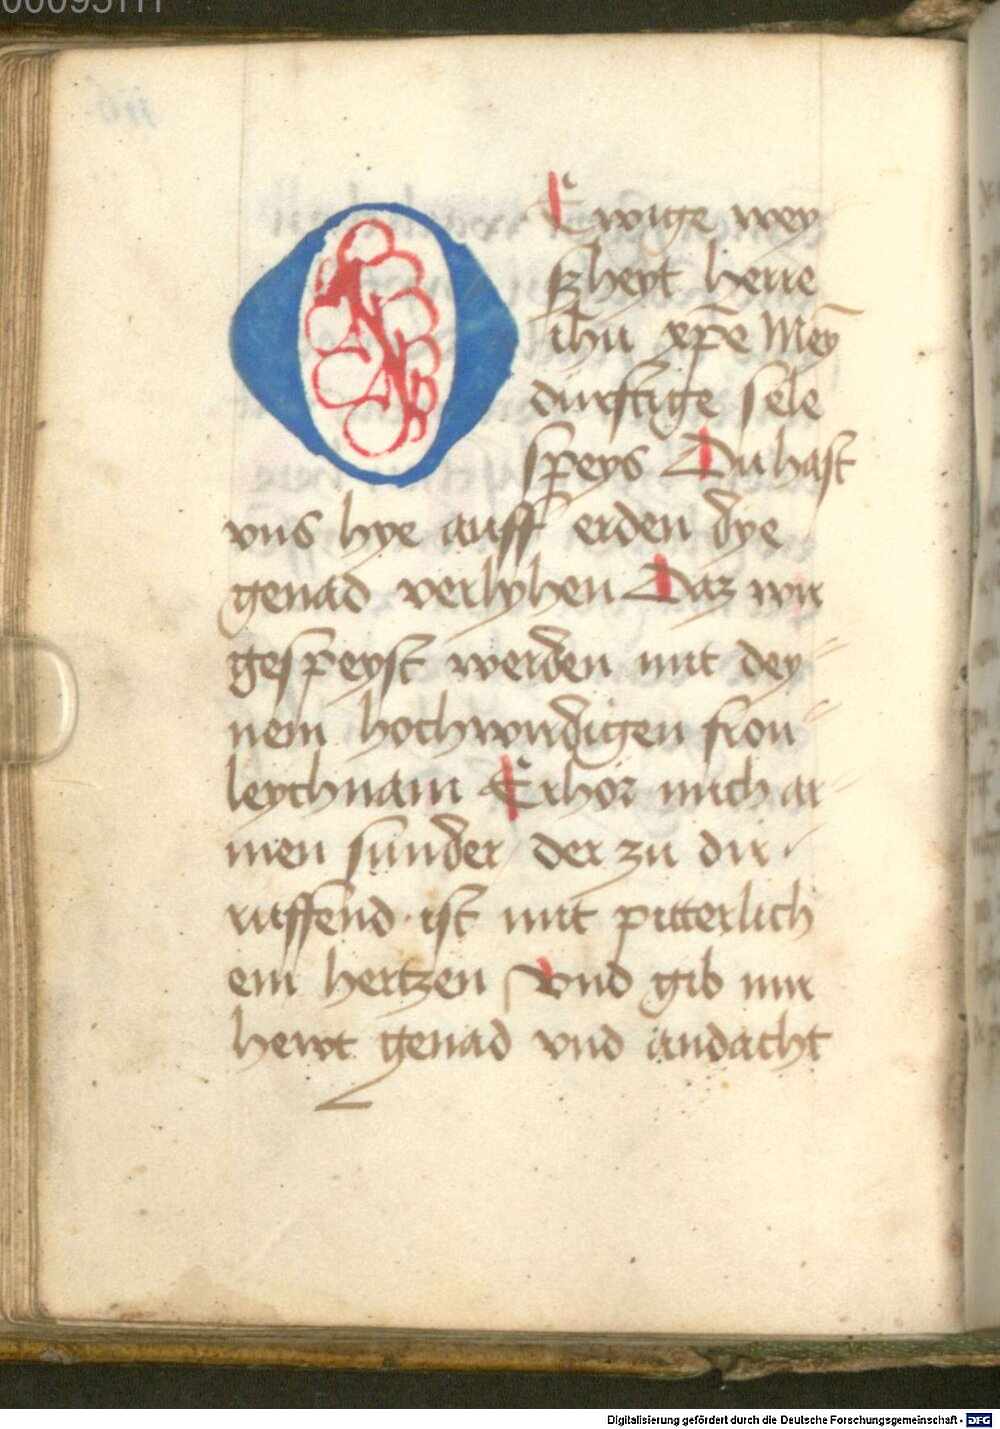 O Ewige wey
szheyt herre
ihu xp̄e Mey̅
durftige sele
speys Du hast
vns hye auff erden dye
genad verlyhen Daz wir
gespeyst werden mit dey
nem hochwirdigen fron
leychnam Erhör mich ar
men sunder der zu dir
ruffend ist mit pitterlich
em hertzen Vnd gib mir
hewt genad vnd andacht
Digitalisierung gefördert durch die Deutsche Forschungsgemeinschaft - DFG